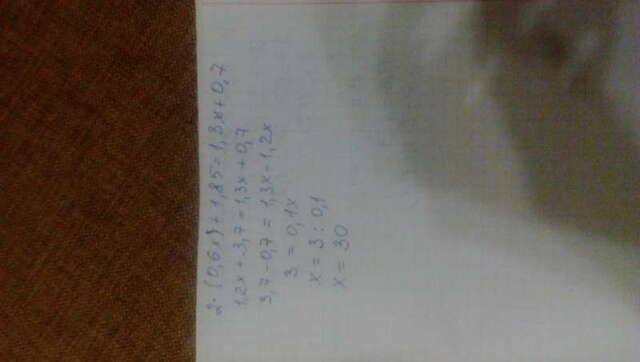 2·(0,6x)+1,85=1,3x+0,7
1,2x+3,7=1,3x+0,7
3,7-0,7=1,3x-1,2x
3=0,1x
x=3:0,1
x=30